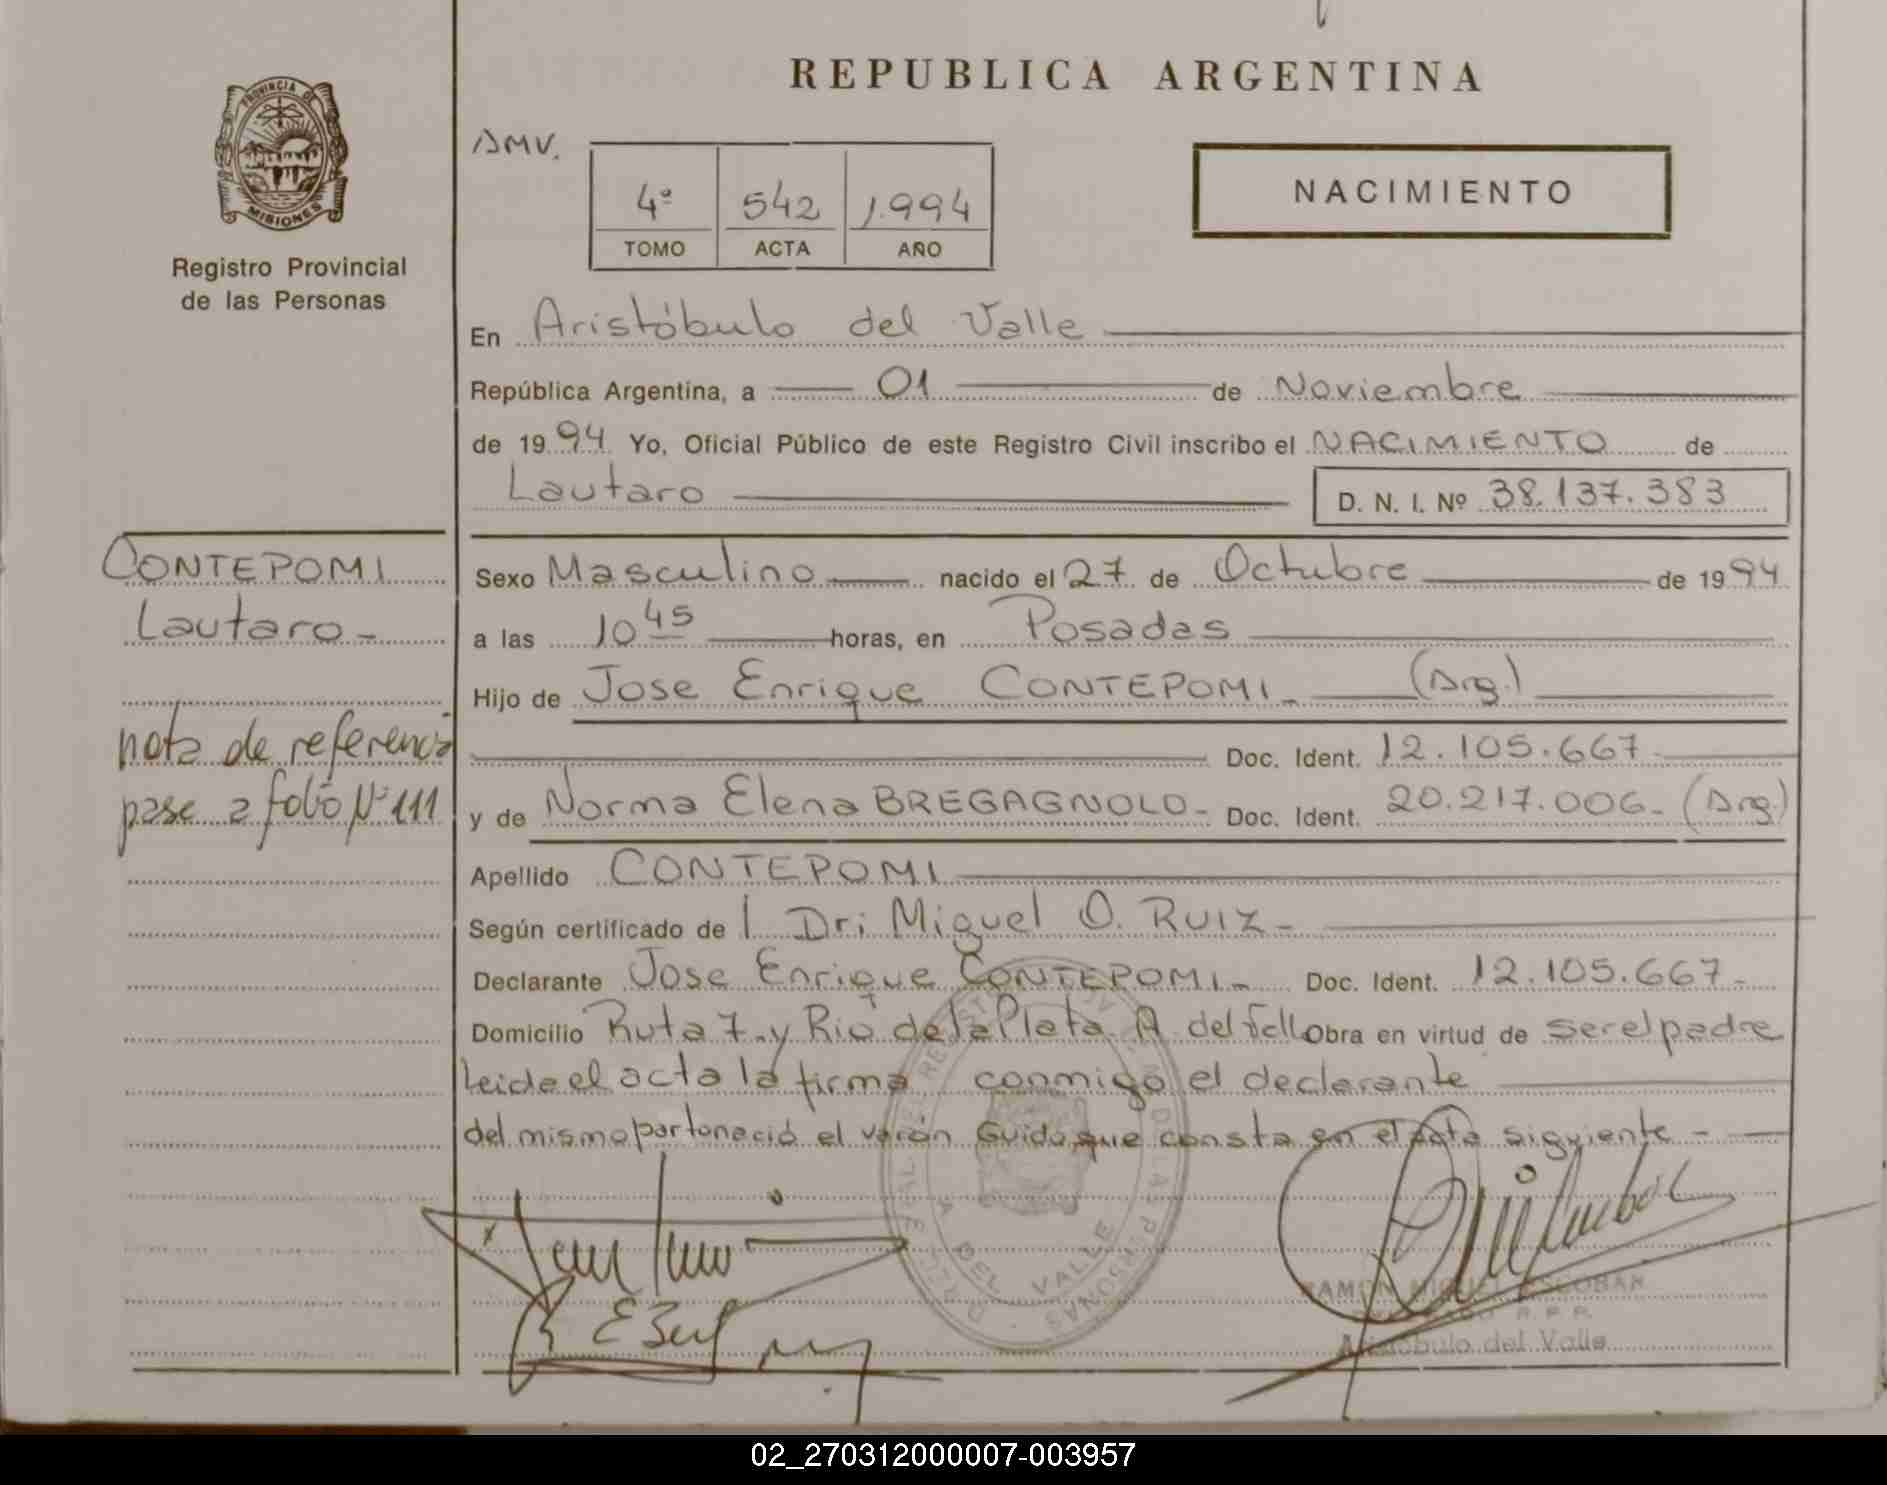 REPUBLICA ARGENTINA
PROVINCIA DE
MISIONES
Registro Provincial
de las Personas
4º 542 1.994
TOMO ACTA AÑO
NACIMIENTO
En Aristóbulo del Valle
República Argentina, a 01 de Noviembre
de 1994 Yo, Oficial Público de este Registro Civil inscribo el NACIMIENTO de
Lautaro D. N. I. Nº 38.137.383
CONTEPOMI
Lautaro -
nota de referencia
pase a folio Nº 111
Sexo Masculino nacido el 27 de Octubre de 1994
a las 10 45 horas, en Posadas
Hijo de Jose Enrique CONTEPOMI - (Arg.)
Doc. Ident. 12.105.667
y de Norma Elena BREGAGNOLO - Doc. Ident. 20.217.006 - (Arg.)
Apellido CONTEPOMI
Según certificado de l Dr: Miguel O. RUIZ -
Declarante Jose Enrique CONTEPOMI - Doc. Ident. 12.105.667 -
Domicilio Ruta 7 y Rio de la Plata A. del Obra en virtud de ser el padre
Leida el acta la firma conmigo el declarante
del mismo parto nació el varón Guido que consta en el acta siguiente -
RAMON MIGUEL ESCOBAR
R.P.P.
Aristóbulo del Valle
02_270312000007-003957